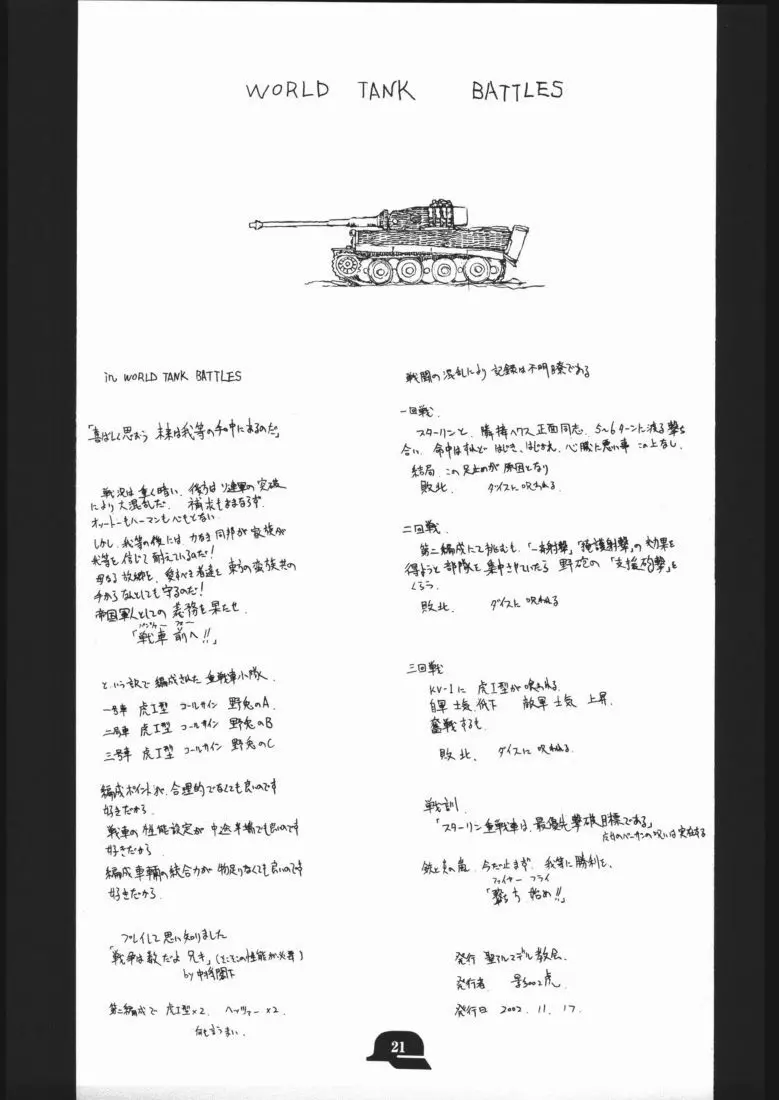 WORLD TANK BATTLES
in WORLD TANK BATTLES
「喜ばしく思おう 未来は我等の手中にあるのだ」
戦況は重く暗い、後方はソ連軍の突破
により大混乱だ。 補求もままならず.
オットーもハーマンもべもどない.
しかし、我等の後には 力なき同邦が家族が
我等を信じて耐えているのだ!
母なる故郷と、愛すべき者達を 東方の蛮族共の
手からなんとしても守るのだ!
帝国軍人としての 義務を果たせ.
「戦車 前へ!!」
という訳で編成された 重戦車小隊.
一号車 虎I型 コールサイン 野兎のA.
二号車 虎I型 コールサイン 野兎のB
三号車 虎I型 コールサイン 野兎のC
編成ポイントが、合理的でなくても良いのです
好きだから.
戦車の性能設定が中途半端でも良いのです
好きだから.
編成車輛の統合力が物足りなくても良いのです
好きだから.
プレイして思い知りました
「戦争は数だよ 兄キ」(そこそこの性能が必要)
by 中将閣下
第二編成で 虎I型×2. ヘッツァー×2.
何も言うまい.
戦闘の混乱により 記録は不明瞭である
一回戦.
スターリンと、 正面同志. 5〜6ターンに渡る撃ち
合い. 命中はすれど はじき、はじかれ. 心臓に悪い事 この上なし.
結局 この足止めが原因となり
敗北. ダイスに呪われる.
二回戦.
第二編成にて挑むも、「一斉射撃」「掩護射撃」の効果を
得ようと部隊を集中させていたら 野砲の「支援砲撃」を
くらう.
敗北. ダイスに呪われる
三回戦
KV-1に 虎I型が喰われる.
自軍 士気 低下 敵軍 士気 上昇.
奮戦するも.
敗北. ダイスに呪われる.
戦訓.
「スターリン重戦車は、最優先撃破目標である」
の呪いは実在する
鉄と炎の嵐. 今だ止まず. 我等に勝利を.
ファイヤー フライ
「撃ち 始め!!」
発行 聖アルマデル教会.
発行者. 影5002虎.
発行日 2002. 11. 17.
21